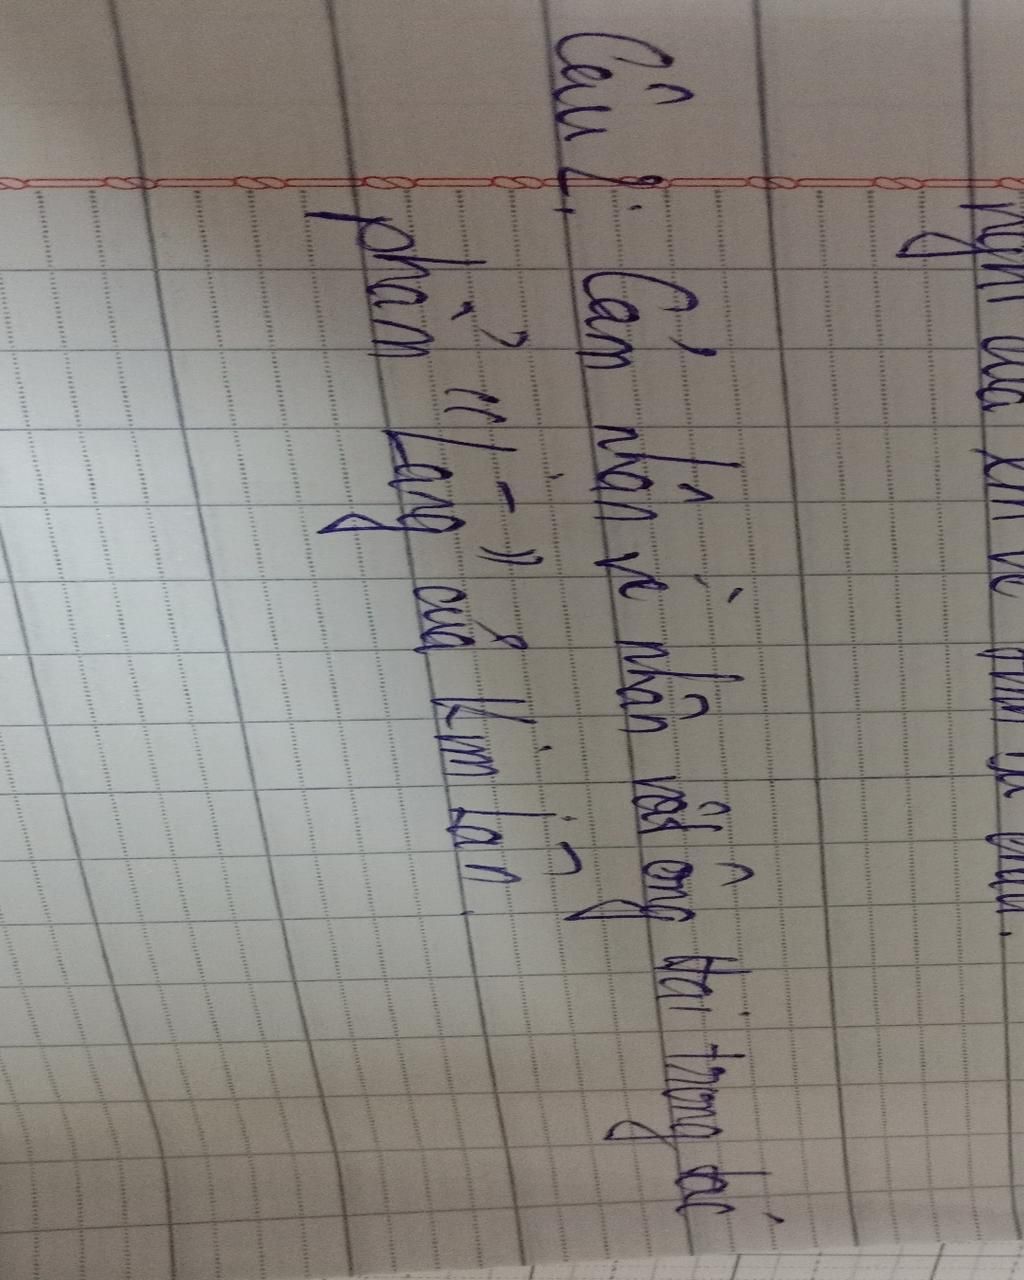 của xin về
Câu 2: Cảm nhận về nhân vật ông Hai trong tác
phẩm "Làng" của Kim Lân.